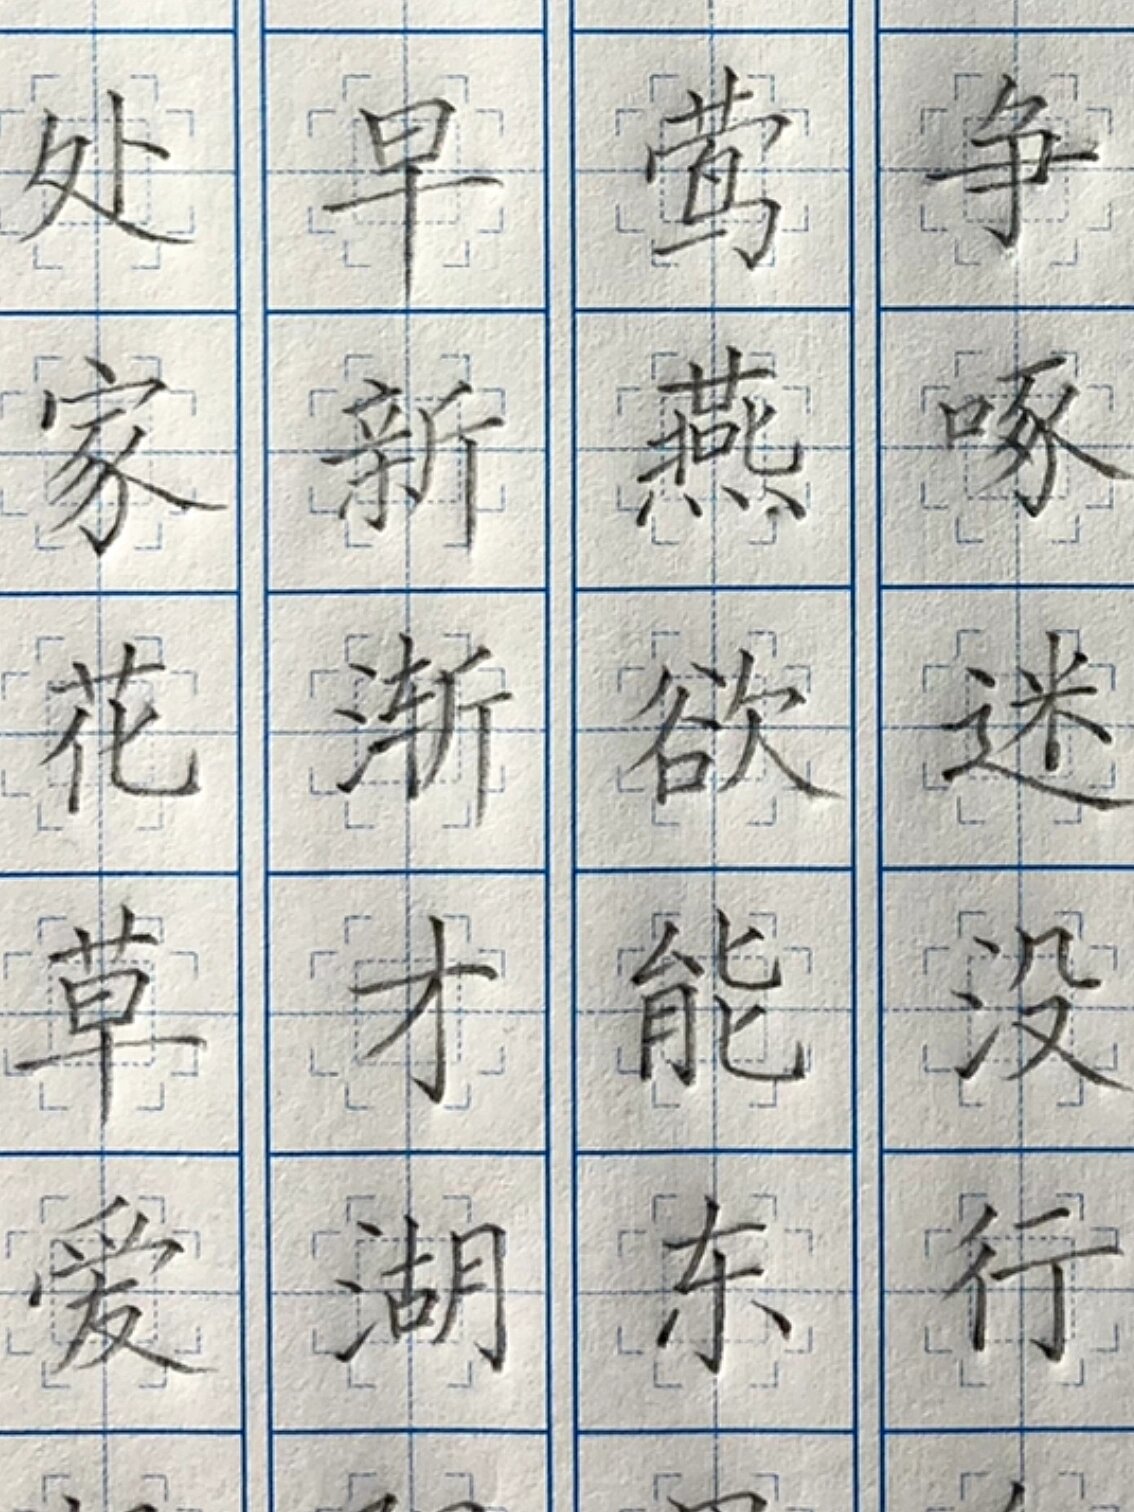 处早莺争
家新燕啄
花渐欲迷
草才能没
爱湖东行